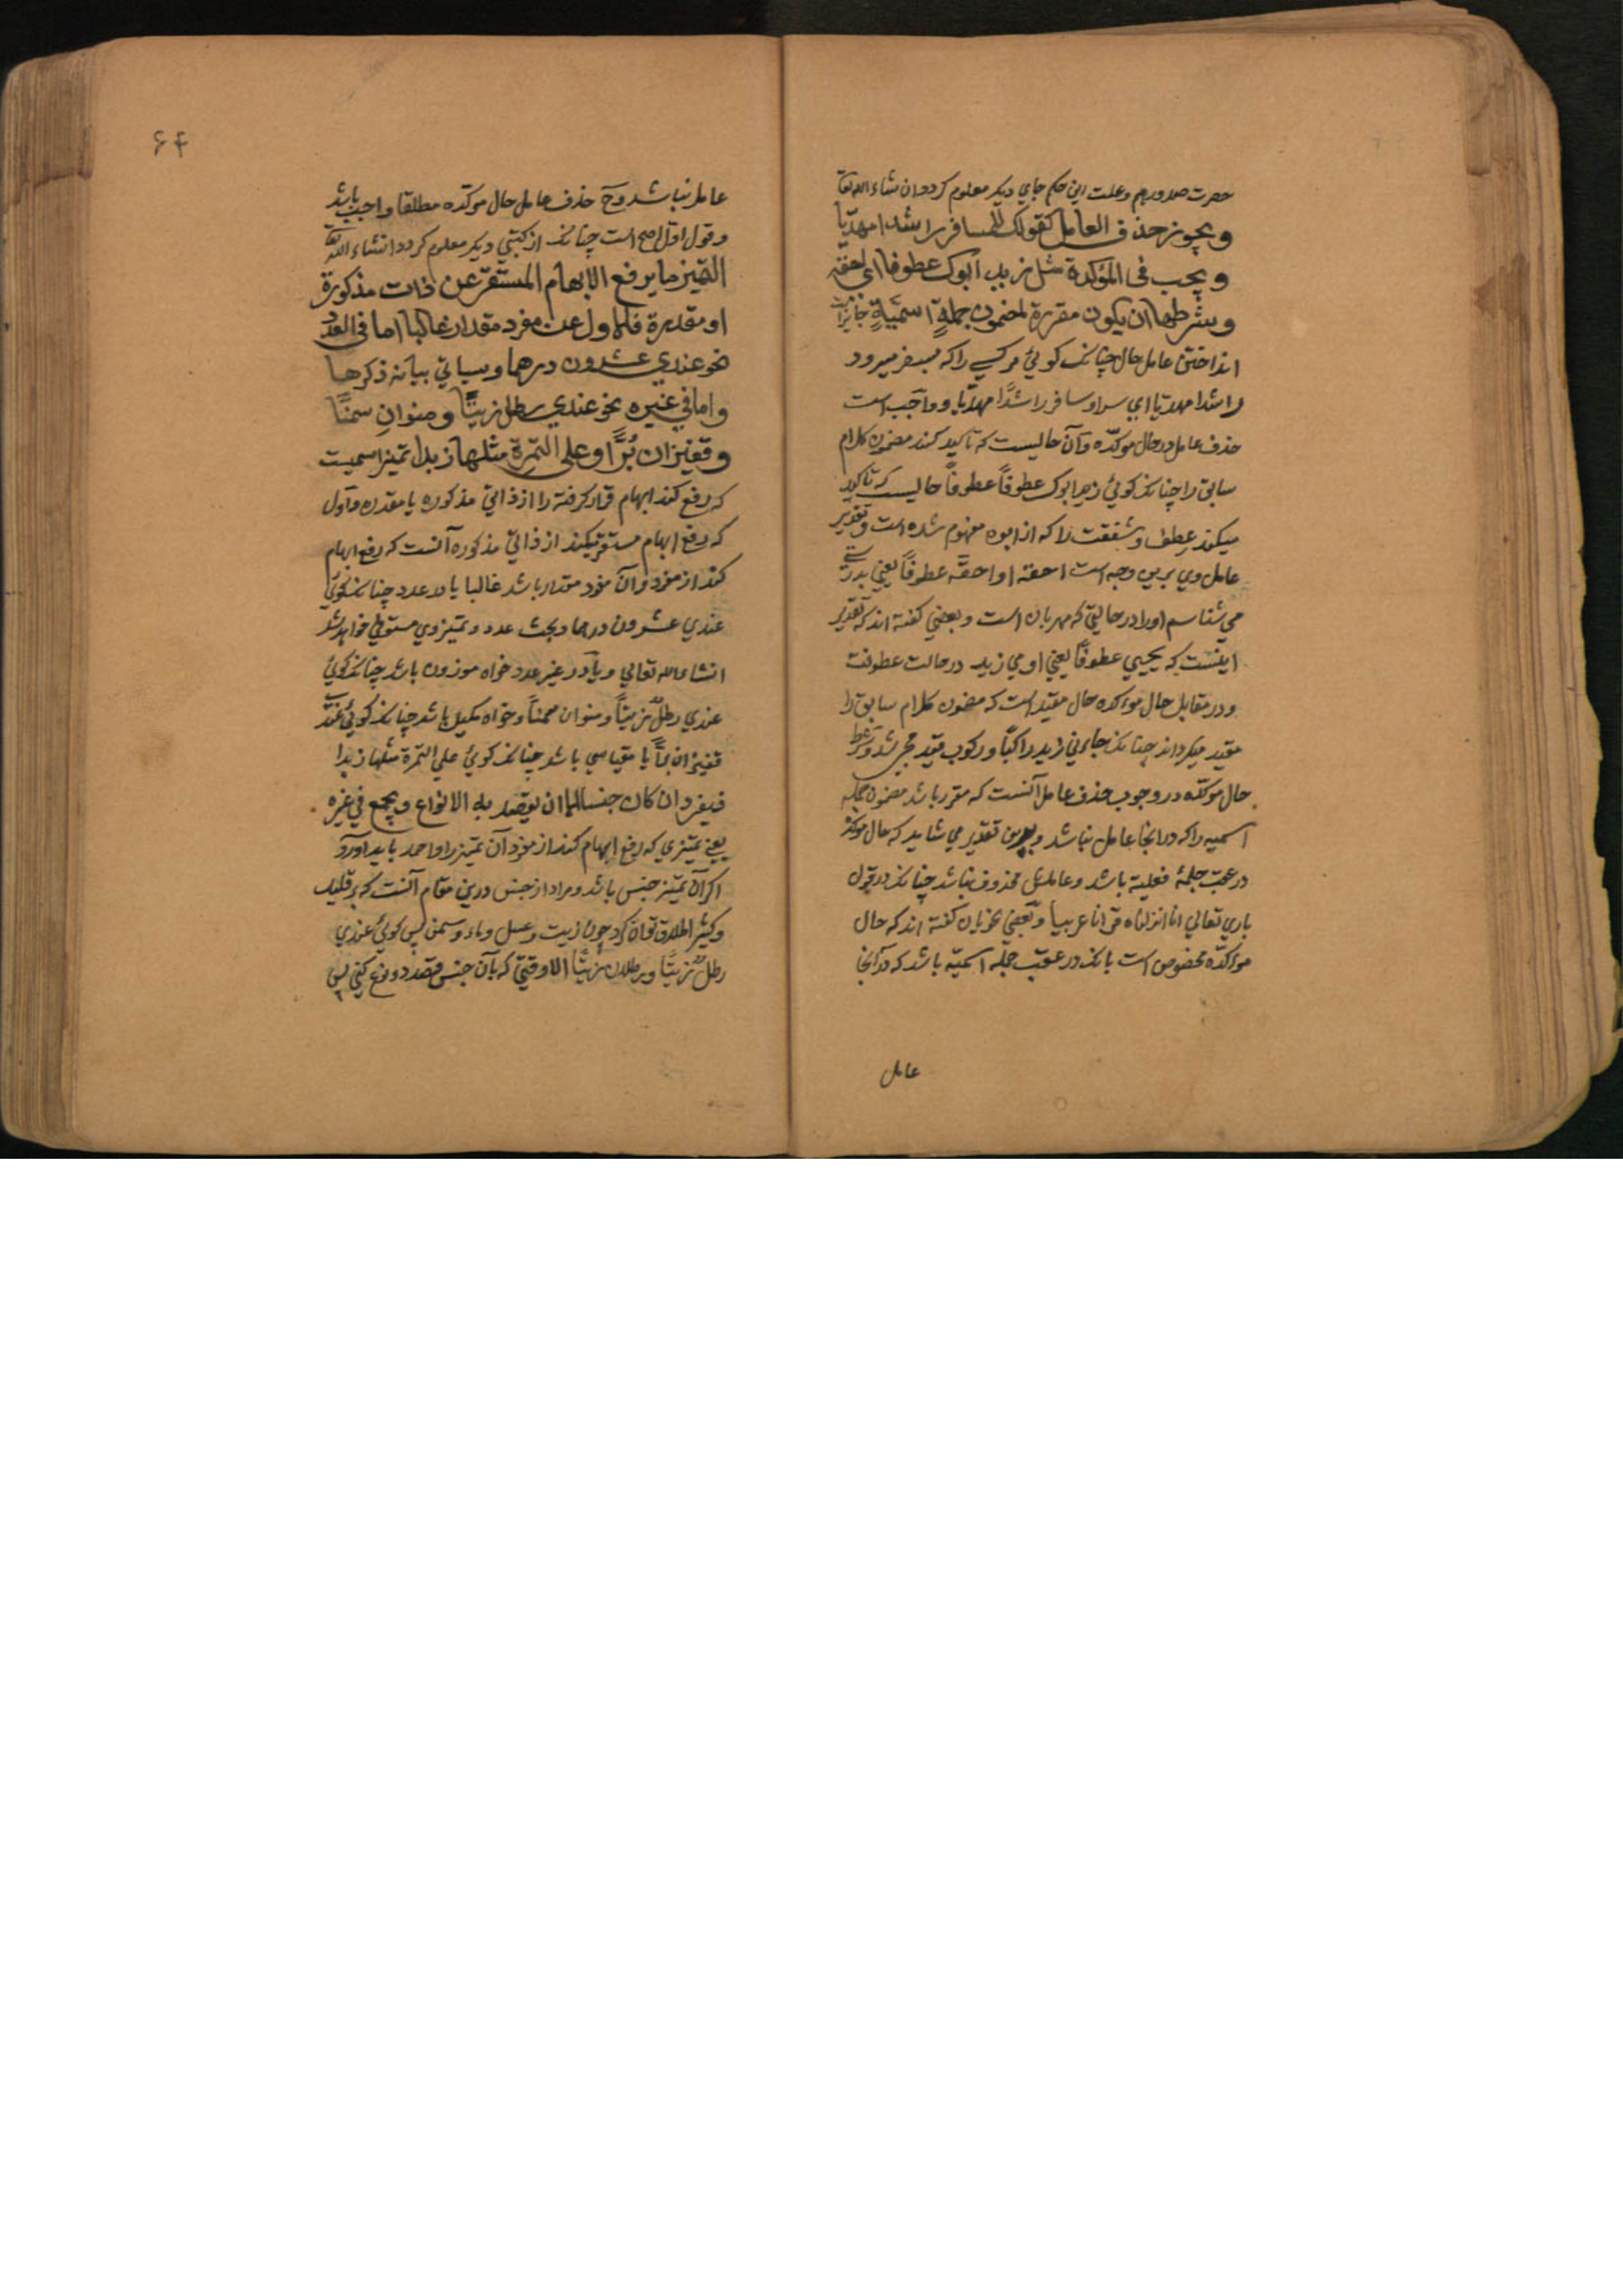 حضرت صدور هم وعلت این حکم جاي دیکر معلوم کردد ان شاء الله تعا
ویجوز حذف العامل کقولک للمسافر راشدا مهدیّا
ویجب فی المؤکدة مثل زید ابوک عطوفا ای احقه
وشرطها ان یکون مقررة لمضمون جملةٍ اسمیّةٍ جایز است
انداختن عامل حال چنانک کوئي مر کسي را که بسفر میرود
راشدا مهدیا اي سر او سافر راشدًا مهدّیا و واجب است
حذف عامل در حال موکدّه وآن حالیست که تاکید کند مضمون کلام
سابق را چنانک کوئي زید ابوک عطوفاً عطوفاً حالیست که تاکید
میکند عطف و شفقت را که از ابوه مفهوم شده است وتقدیر
عامل وي برین وجه است احقه او احقّه عطوفاً یعني بدرستے
مي شناسم او را در حالتي که مهربان است و بعضي کفته اند که تقدیر
اینست که یجیي عطوفاً یعني او مي زید در حالت عطوفت
و در مقابل حال مواکده حال مقید است که مضمون کلام سابق را
مقید میکرداند چنانک جاءني زید راکباً و رکوب قید مجي شد وشرط
حال موکدّه در وجوب حذف عامل آنست که مقرر باشد مضمون جمله
اسمیه را که در انجا عامل نباشد و برین تقدیر مي شاید که حال موکد
در عقب جملهٔ فعلیة باشد و عاملش محذوف نباشد چنانک در قول
باري تعالي انا انزلناه قرانا عربیاً وبعضي نحویان کفته اند که حال
مواکدّه مخصوص است بانک در عقب جمله اسمیّه باشد که در آنجا
عامل
۶۴
عامل نباشد و ح حذف عامل حال موکدّه مطلقا واجب باشد
وقول اوّل اصح است چنانک از کتبي دیکر معلوم کردد انشاء الله تعا
التمیز ما یرفع الابهام المستقرّ عن ذات مذکورة
او مقدرة فالاول عن مفرد مقدار غالبا اما فی العدد
نحو عندي عشرون درهما وسیاتي بیانه ذکرها
واما في غیره نحو عندي رطل زیتًا ومنوان سمنًا
وقفیزان بُرًّا وعلی التمرة مثلها زبدا تمیز اسمیست
که رفع کند ابهام قرار کرفته را از ذاتي مذکوره یا مقدره واول
که رفع ابهام مستقر میکند از ذاتي مذکوره آنست که رفع ابهام
کند از مفرد وآن مفرد مقدار باشد غالبا یا در عدد چنانک کوئي
عندي عشرون درهما وبحث عدد وتمیز وي مستوفي خواهد شد
انشاء الله تعالي ویا در غیر عدد خواه موزون باشد چنانک کوئي
عندي رطلٌ زیتاً ومنوان سمناً وخواه مکیل باشد چنانک کوئي عندي
قفیزان برًّا یا مقیاسي باشد چنانک کوئي علي التمرة مثلها زبدا
فیفرد ان کان جنسا الا ان یقصد به الانواع ویجمع في غیره
یعني تمیزي که رفع ابهام کند از مفرد آن تمیز را واحد باید آورد
اکر آن تمیز جنس باشد ومراد از جنس درین مقام آنست که بر قلیل
وکثیر اطلاق توان کرد چون زیت وعسل وماء وسمن پس کوئي عندي
رطلٌ زیتًا ورطلان زیتًا الا وقتي که بآن جنس قصد دو نوع کني پس